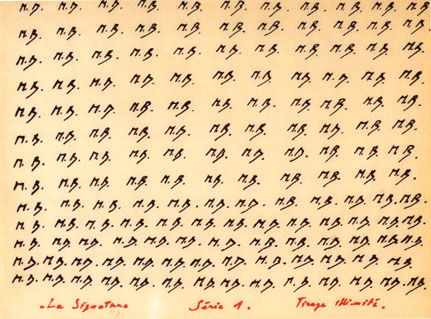 M.B. M.B. M.B. M.B. M.B. M.B. M.B. M.B. M.B. M.B. M.B.
M.B. M.B. M.B. M.B. M.B. M.B. M.B. M.B. M.B. M.B. M.B.
M.B. M.B. M.B. M.B. M.B. M.B. M.B. M.B. M.B. M.B. M.B.
M.B. M.B. M.B. M.B. M.B. M.B. M.B. M.B. M.B. M.B. M.B.
M.B. M.B. M.B. M.B. M.B. M.B. M.B. M.B. M.B. M.B. M.B.
M.B. M.B. M.B. M.B. M.B. M.B. M.B. M.B. M.B. M.B. M.B.
M.B. M.B. M.B. M.B. M.B. M.B. M.B. M.B. M.B. M.B. M.B.
M.B. M.B. M.B. M.B. M.B. M.B. M.B. M.B. M.B. M.B. M.B.
M.B. M.B. M.B. M.B. M.B. M.B. M.B. M.B. M.B. M.B. M.B. M.B.
M.B. M.B. M.B. M.B. M.B. M.B. M.B. M.B. M.B. M.B. M.B. M.B. M.B.
M.B. M.B. M.B. M.B. M.B. M.B. M.B. M.B. M.B. M.B. M.B. M.B. M.B.
M.B. M.B. M.B. M.B. M.B. M.B. M.B. M.B. M.B. M.B. M.B. M.B. M.B.
M.B. M.B. M.B. M.B. M.B. M.B. M.B. M.B. M.B. M.B. M.B. M.B. M.B.
La Signature Série 1. Tirage illimité.